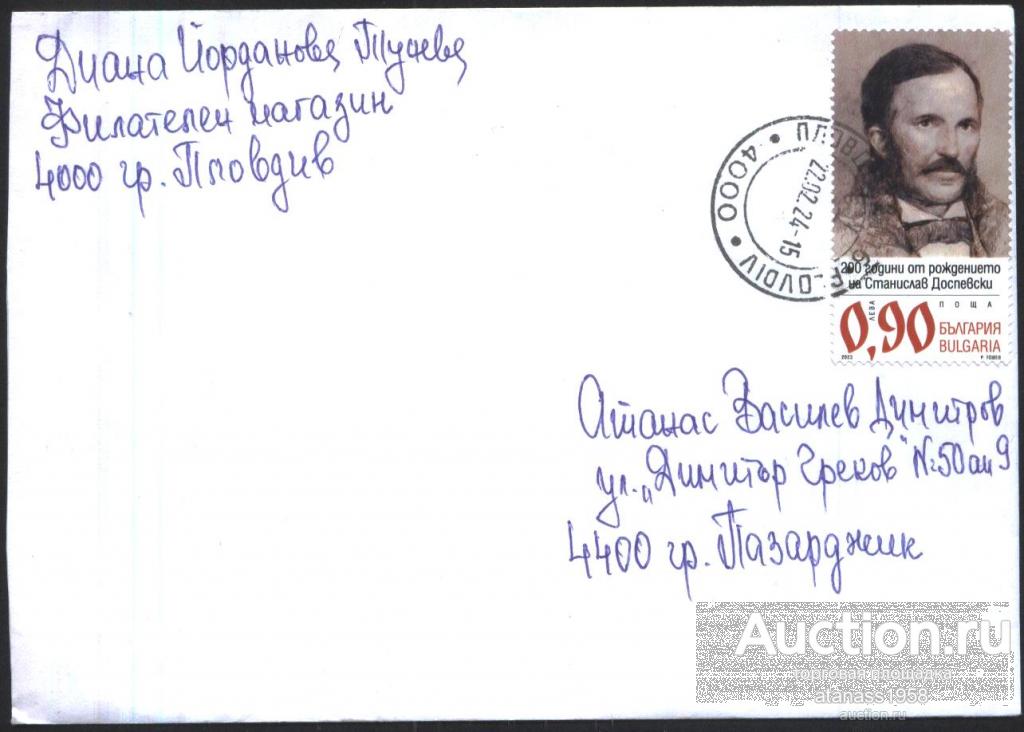 Диана Йорданова Тунева
Филателен магазин
4000 гр. Пловдив
4000 • ПЛОВДИВ
22.02.24-15
PLOVDIV
200 години от рождението
на Станислав Доспевски
0,90 ЛЕВА
ПОЩА
БЪЛГАРИЯ
BULGARIA
2023
Атанас Василев Димитров
ул. „Димитър Греков" №50 ап 9
4400 гр. Пазарджик
Auction.ru
торговая площадка
atanass1958
auction.ru